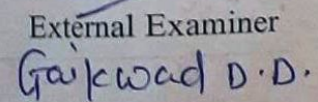 External Examiner
Gaikwad D.D.